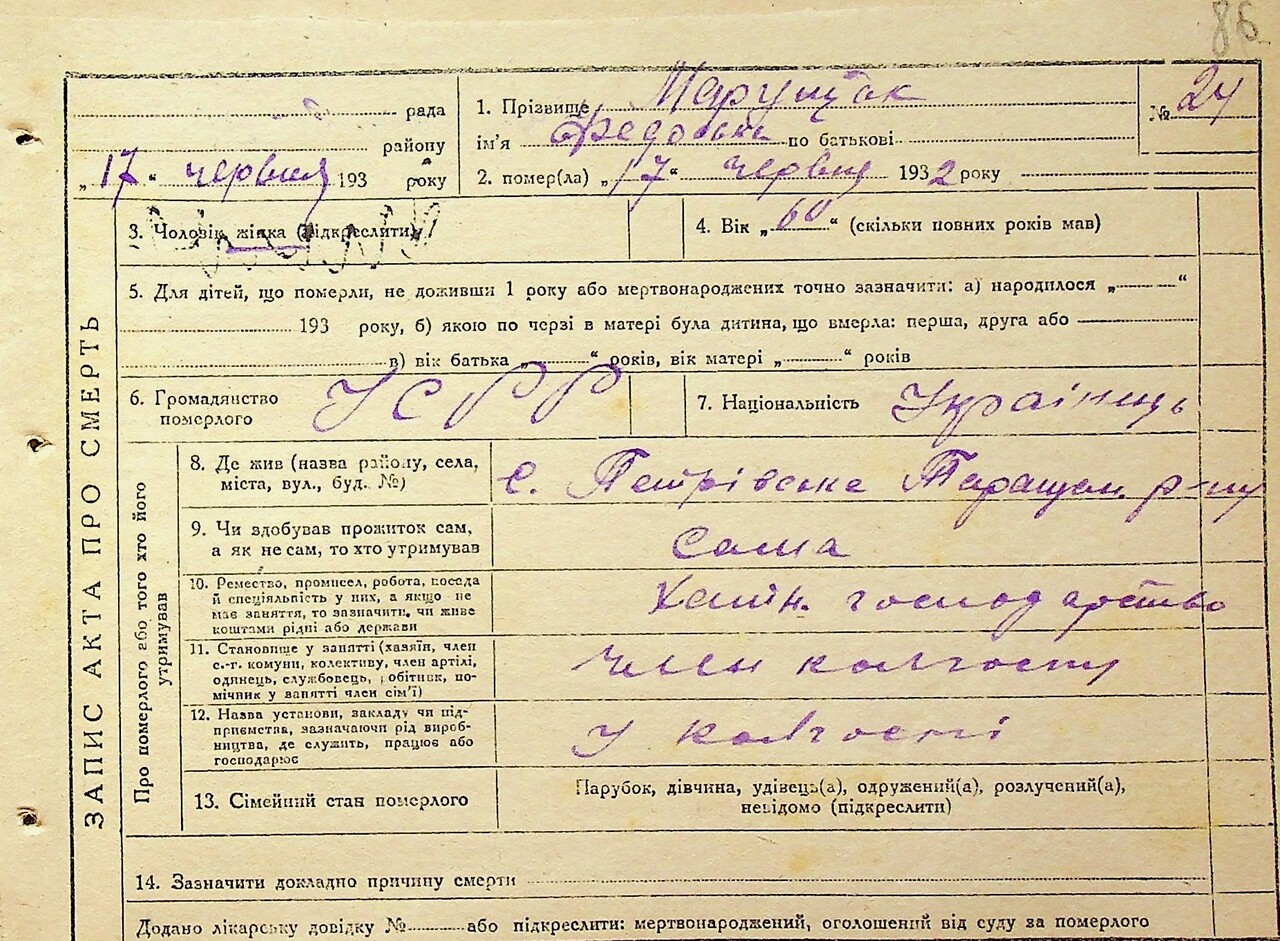 86
рада
району
„17“ червня 193 року
1. Прізвище Марущак
ім'я Федосья по батькові
2. помер(ла) „17“ червня 1932 року
№ 24
3. Чоловік жінка (підкреслити)
4. Вік „60“ (скільки повних років мав)
5. Для дітей, що померли, не доживши 1 року або мертвонароджених точно зазначити: а) народилося „ “
193 року, б) якою по черзі в матері була дитина, що вмерла: перша, друга або
в) вік батька „ “ років, вік матері „ “ років
6. Громадянство
померлого
УСРР
7. Національність Українць
ЗАПИС АКТА ПРО СМЕРТЬ
Про померлого або того хто його
утримував
8. Де жив (назва району, села,
міста, вул., буд. №)
с. Петрівське Таращан. р-ну
9. Чи здобував прожиток сам,
а як не сам, то хто утримував
Сама
10. Ремество, промисел, робота, посада
й спеціяльність у них, а якщо не
має заняття, то зазначити, чи живе
коштами рідні або держави
господарство
11. Становище у занятті (хазяїн, член
с.-г. комуни, колективу, член артілі,
одинець, службовець, робітник, по-
мічник у занятті член сім'ї)
член колгоспу
12. Назва установи, закладу чи під-
приємства, зазначаючи рід вироб-
ництва, де служить, працює або
господарює
У колгоспі
13. Сімейний стан померлого
Парубок, дівчина, удівець(а), одружений(а), розлучений(а),
невідомо (підкреслити)
14. Зазначити докладно причину смерти
Додано лікарську довідку № або підкреслити: мертвонароджений, оголошений від суду за померлого